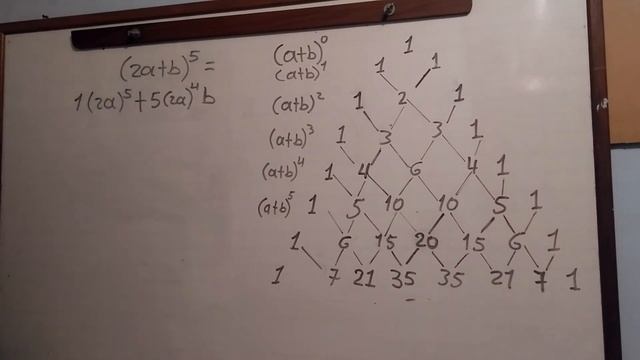 (2a+b)⁵ =
1(2a)⁵+5(2a)⁴b
(a+b)⁰ 1
(a+b)¹ 1 1
(a+b)² 1 2 1
(a+b)³ 1 3 3 1
(a+b)⁴ 1 4 6 4 1
(a+b)⁵ 1 5 10 10 5 1
1 6 15 20 15 6 1
1 7 21 35 35 21 7 1